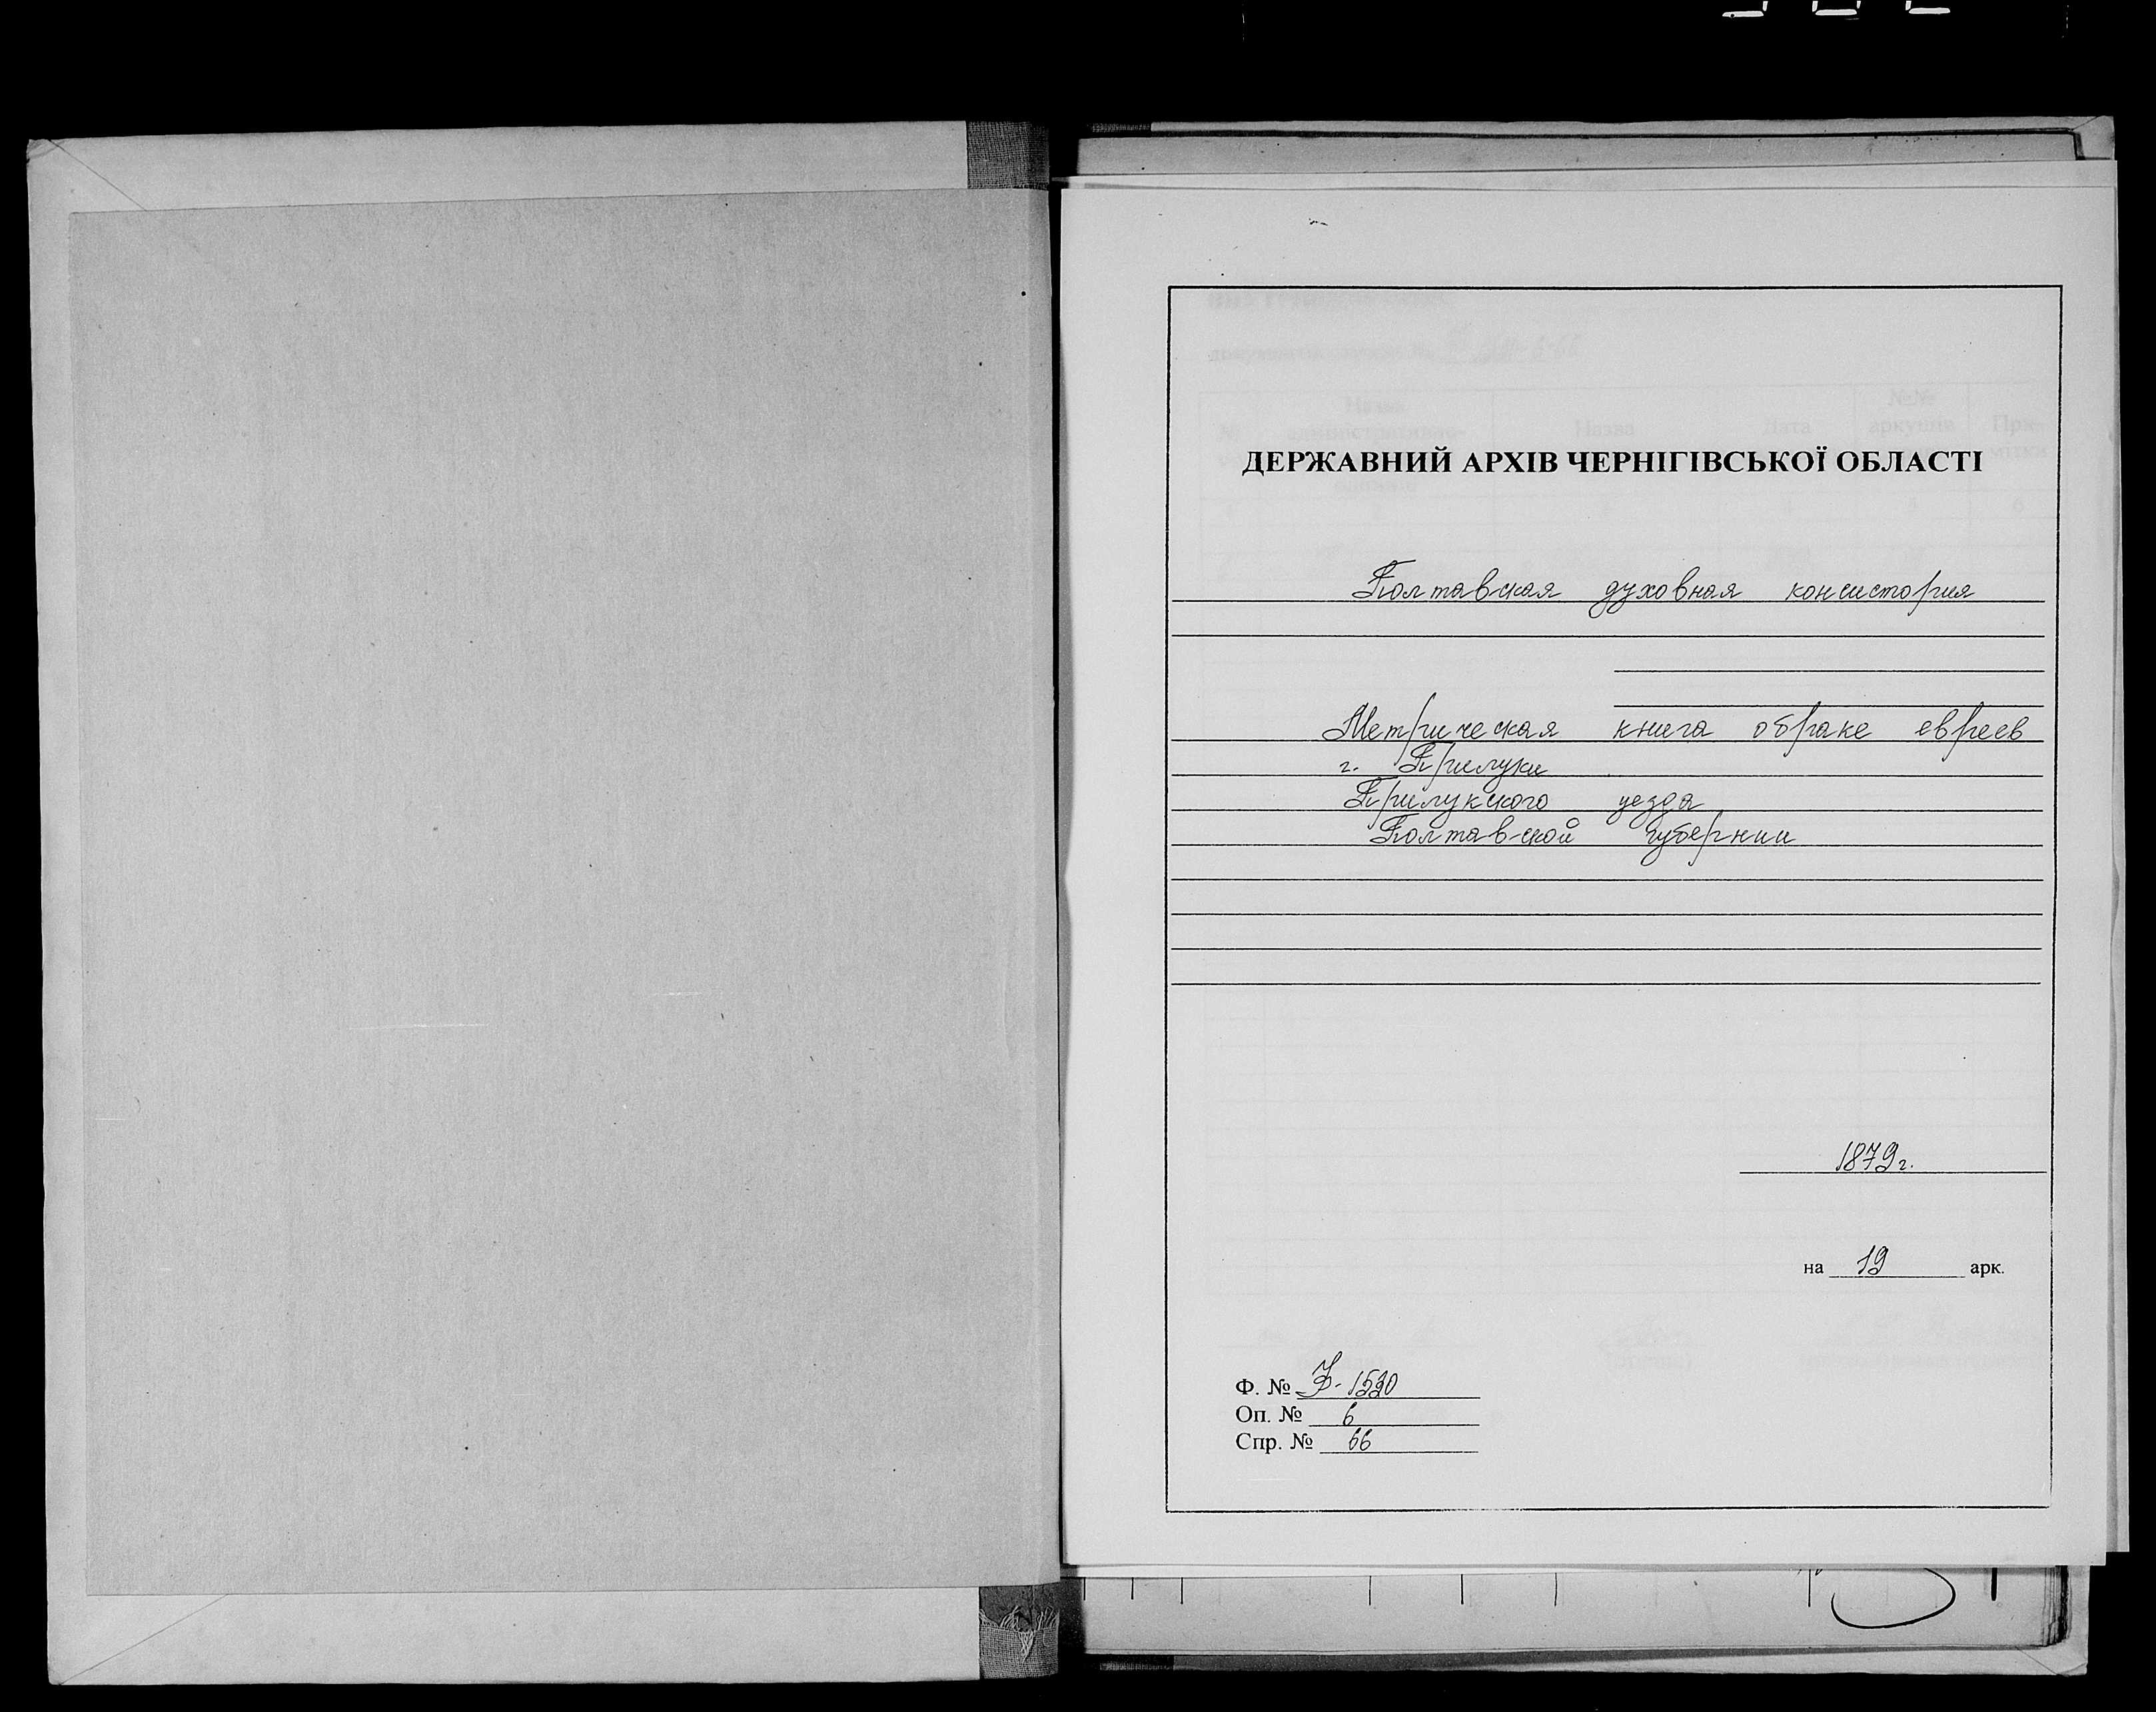 ДЕРЖАВНИЙ АРХІВ ЧЕРНІГІВСЬКОЇ ОБЛАСТІ
Полтавская духовная консистория
Метрическая книга о браке евреев
г. Прилуки
Прилукского уезда
Полтавской губернии
1879 г.
на 19 арк.
Ф. № Ф-1530
Оп. № 6
Спр. № 66